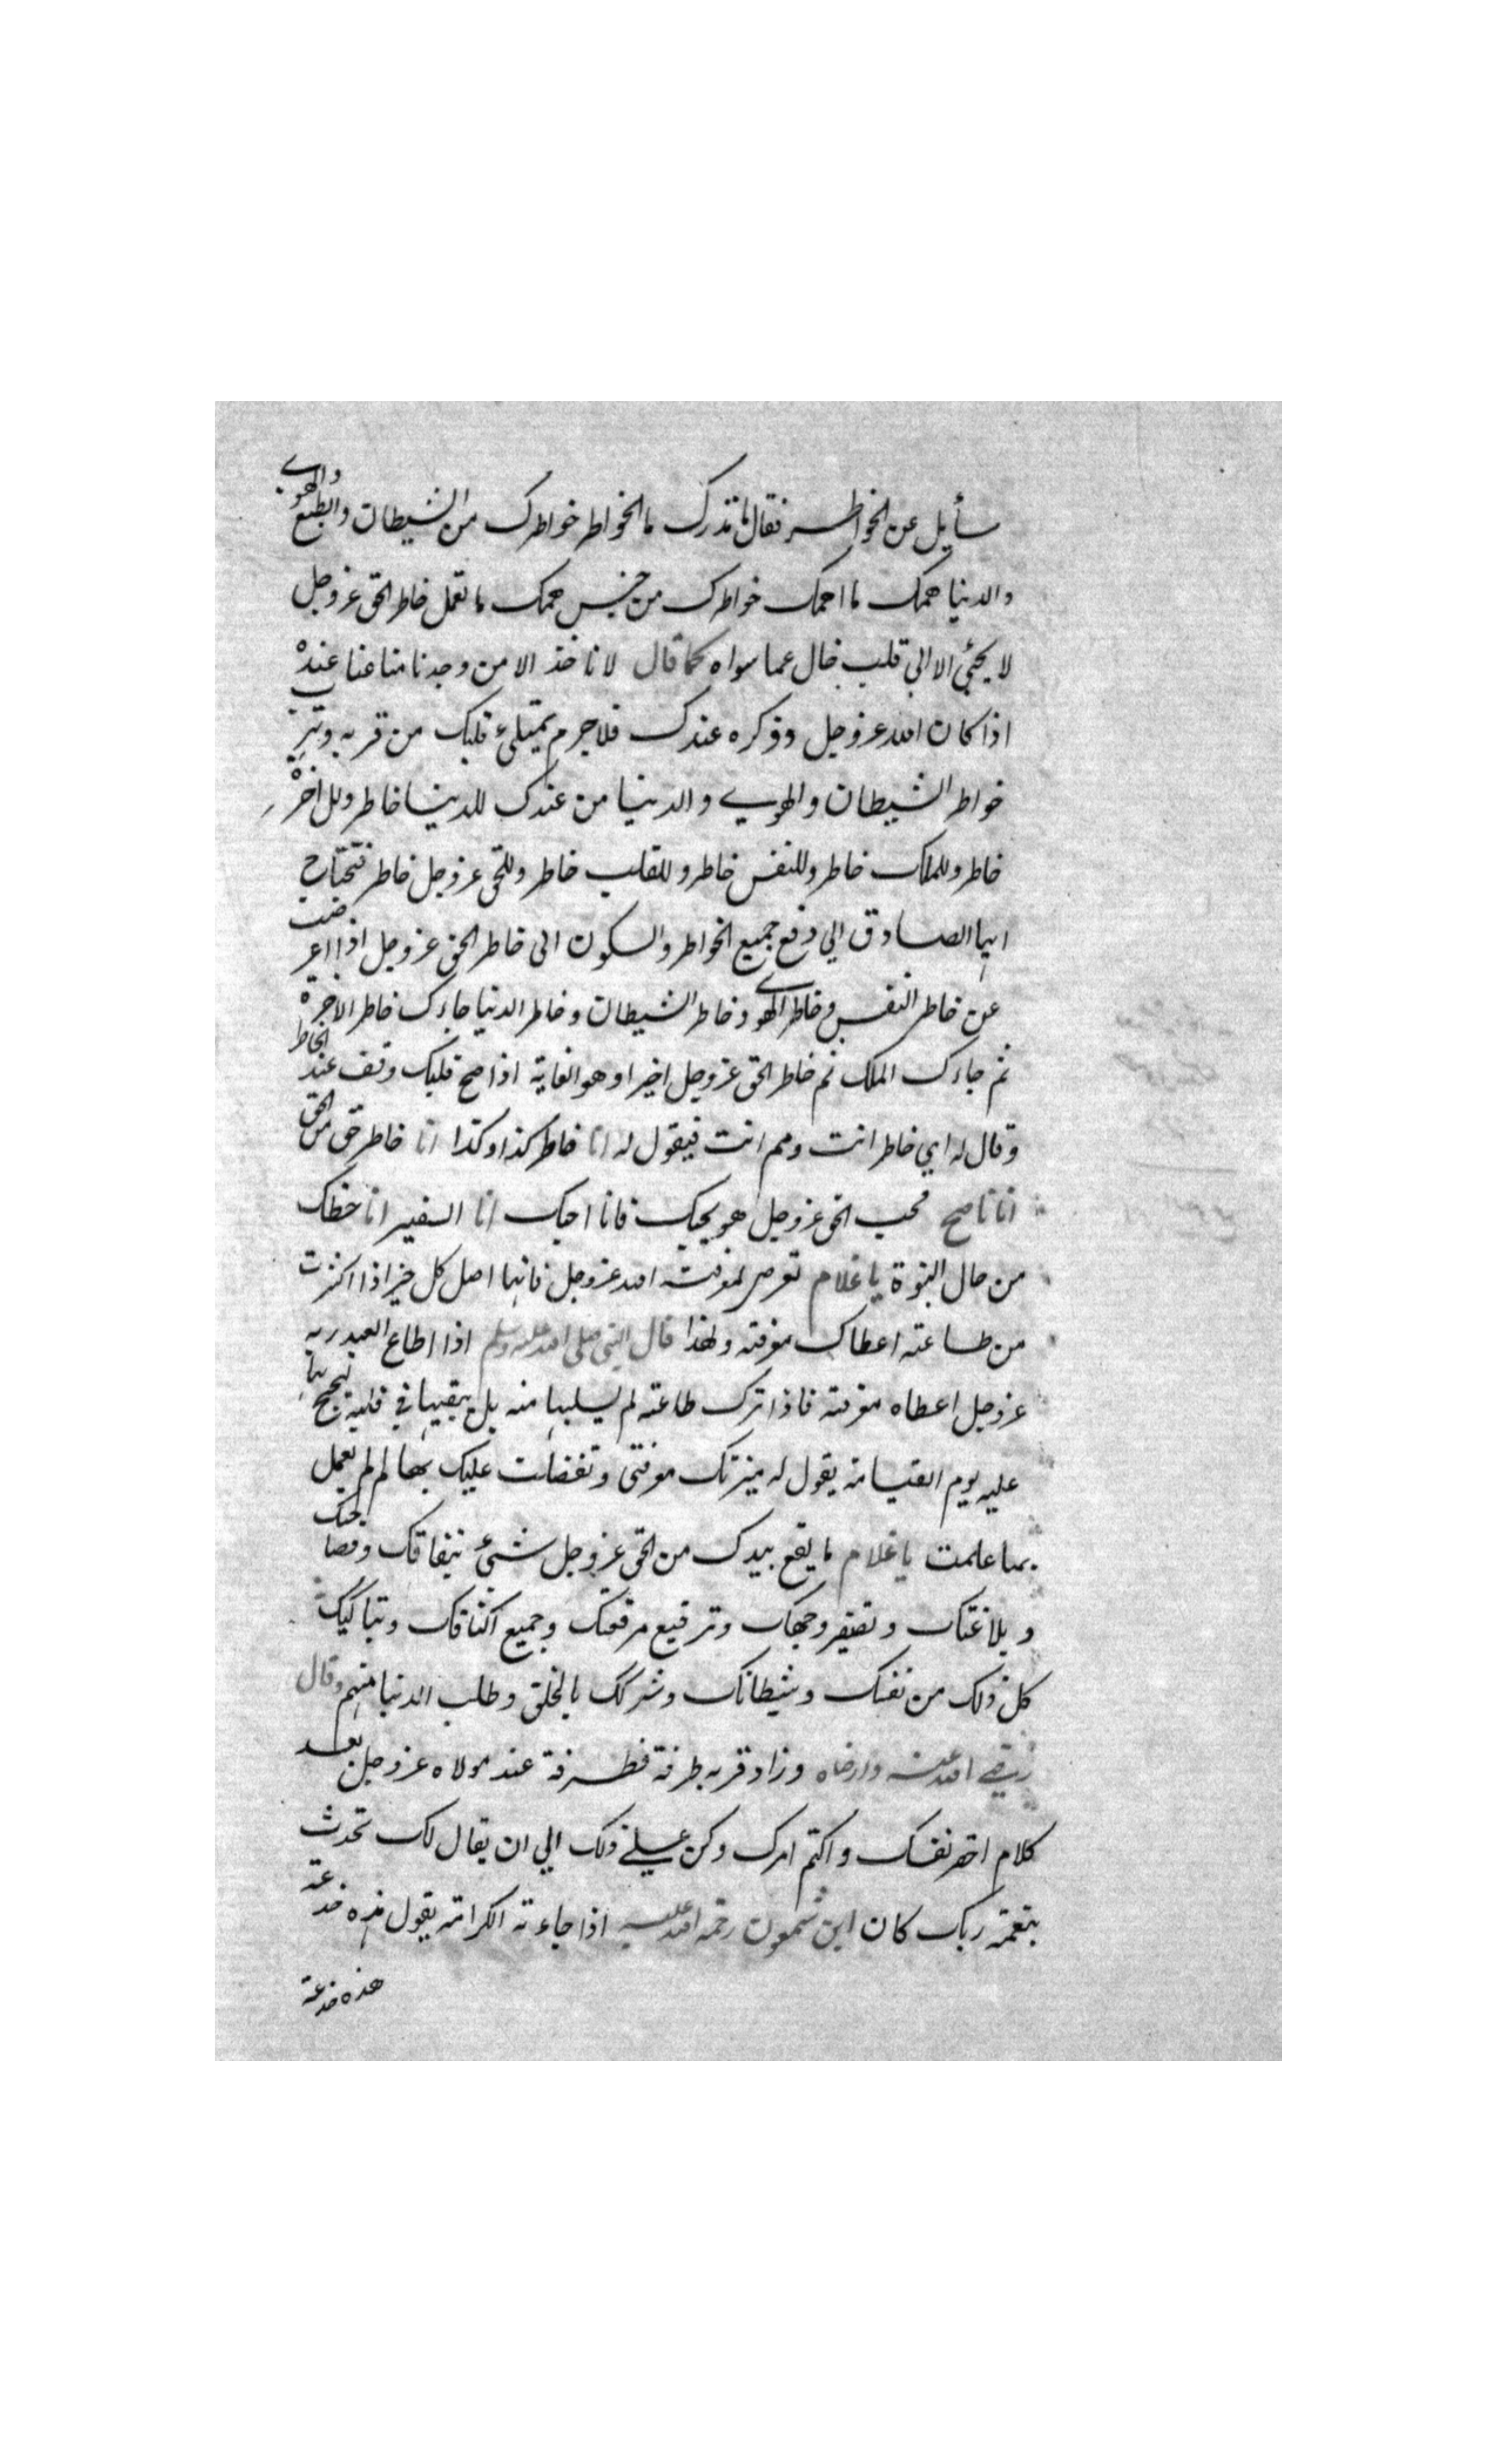 سأيل عن الخواطر فقال ما تدرك ما الخواطر خواطرك من الشيطان والطبع والهوي
والدنيا همك ما اهمك خواطرك من جنس همك ما تعمل خاطر الحق عز وجل
لا يجئي الا الى قلب خال عما سواه كما قال لا ناخذ الا من وجدنا متاعنا عنده
اذا كان الله عز وجل وذكره عندك فلا جرم يمتلئ قلبك من قربه وتهرب
خواطر الشيطان والهوي والدنيا من عندك للدنيا خاطر وللاخرة
خاطر وللملك خاطر وللنفس خاطر وللقلب خاطر وللحق عز وجل خاطر فتحتاج
ايها الصادق الي دفع جميع الخواطر والسكون الى خاطر الحق عز وجل اذا اعرضت
عن خاطر النفس وخاطر الهوي وخاطر الشيطان وخاطر الدنيا جاءك خاطر الاخرة
ثم جاءك الملك ثم خاطر الحق عز وجل اخيرا وهو الغاية اذا صح قلبك وقف عند الخاطر
وقال له اي خاطر انت ومم انت فيقول له انا خاطر كذا وكذا انا خاطر حق من الحق
انا ناصح محب الحق عز وجل هو يحبك فانا احبك انا السفير انا حظك
من حال النبوة يا غلام تعرض لمعرفة الله عز وجل فانها اصل كل خير اذا اكثرت
من طاعته اعطاك معرفته ولهذا قال النبي صلى الله عليه وسلم اذا اطاع العبد ربه
عز وجل اعطاه معرفته فاذا ترك طاعته لم يسلبها منه بل يبقيها في قلبه ليحتج بها
عليه يوم القيامة يقول له ميزتك معرفتي وتفضلت عليك بها لم لم تعمل
بما علمت يا غلام ما يقع بيدك من الحق عز وجل شئ بنفاقك وفصاحتك
وبلاغتك وتصفير وجهك وترقيع مرقعتك وجميع اكتافك وتباكيك
كل ذلك من نفسك وشيطانك وشركك بالخلق وطلب الدنيا منهم وقال
رضي الله عنه وارضاه وزاد قربه طرفة فطرفة عند مولاه عز وجل بعد
كلام احقر نفسك واكتم امرك وكن علي ذلك الي ان يقال لك تحدث
بنعمة ربك كان ابن شمعون رحمة الله عليه اذا جاءته الكرامة يقول هذه خدعة
هذه خدعة